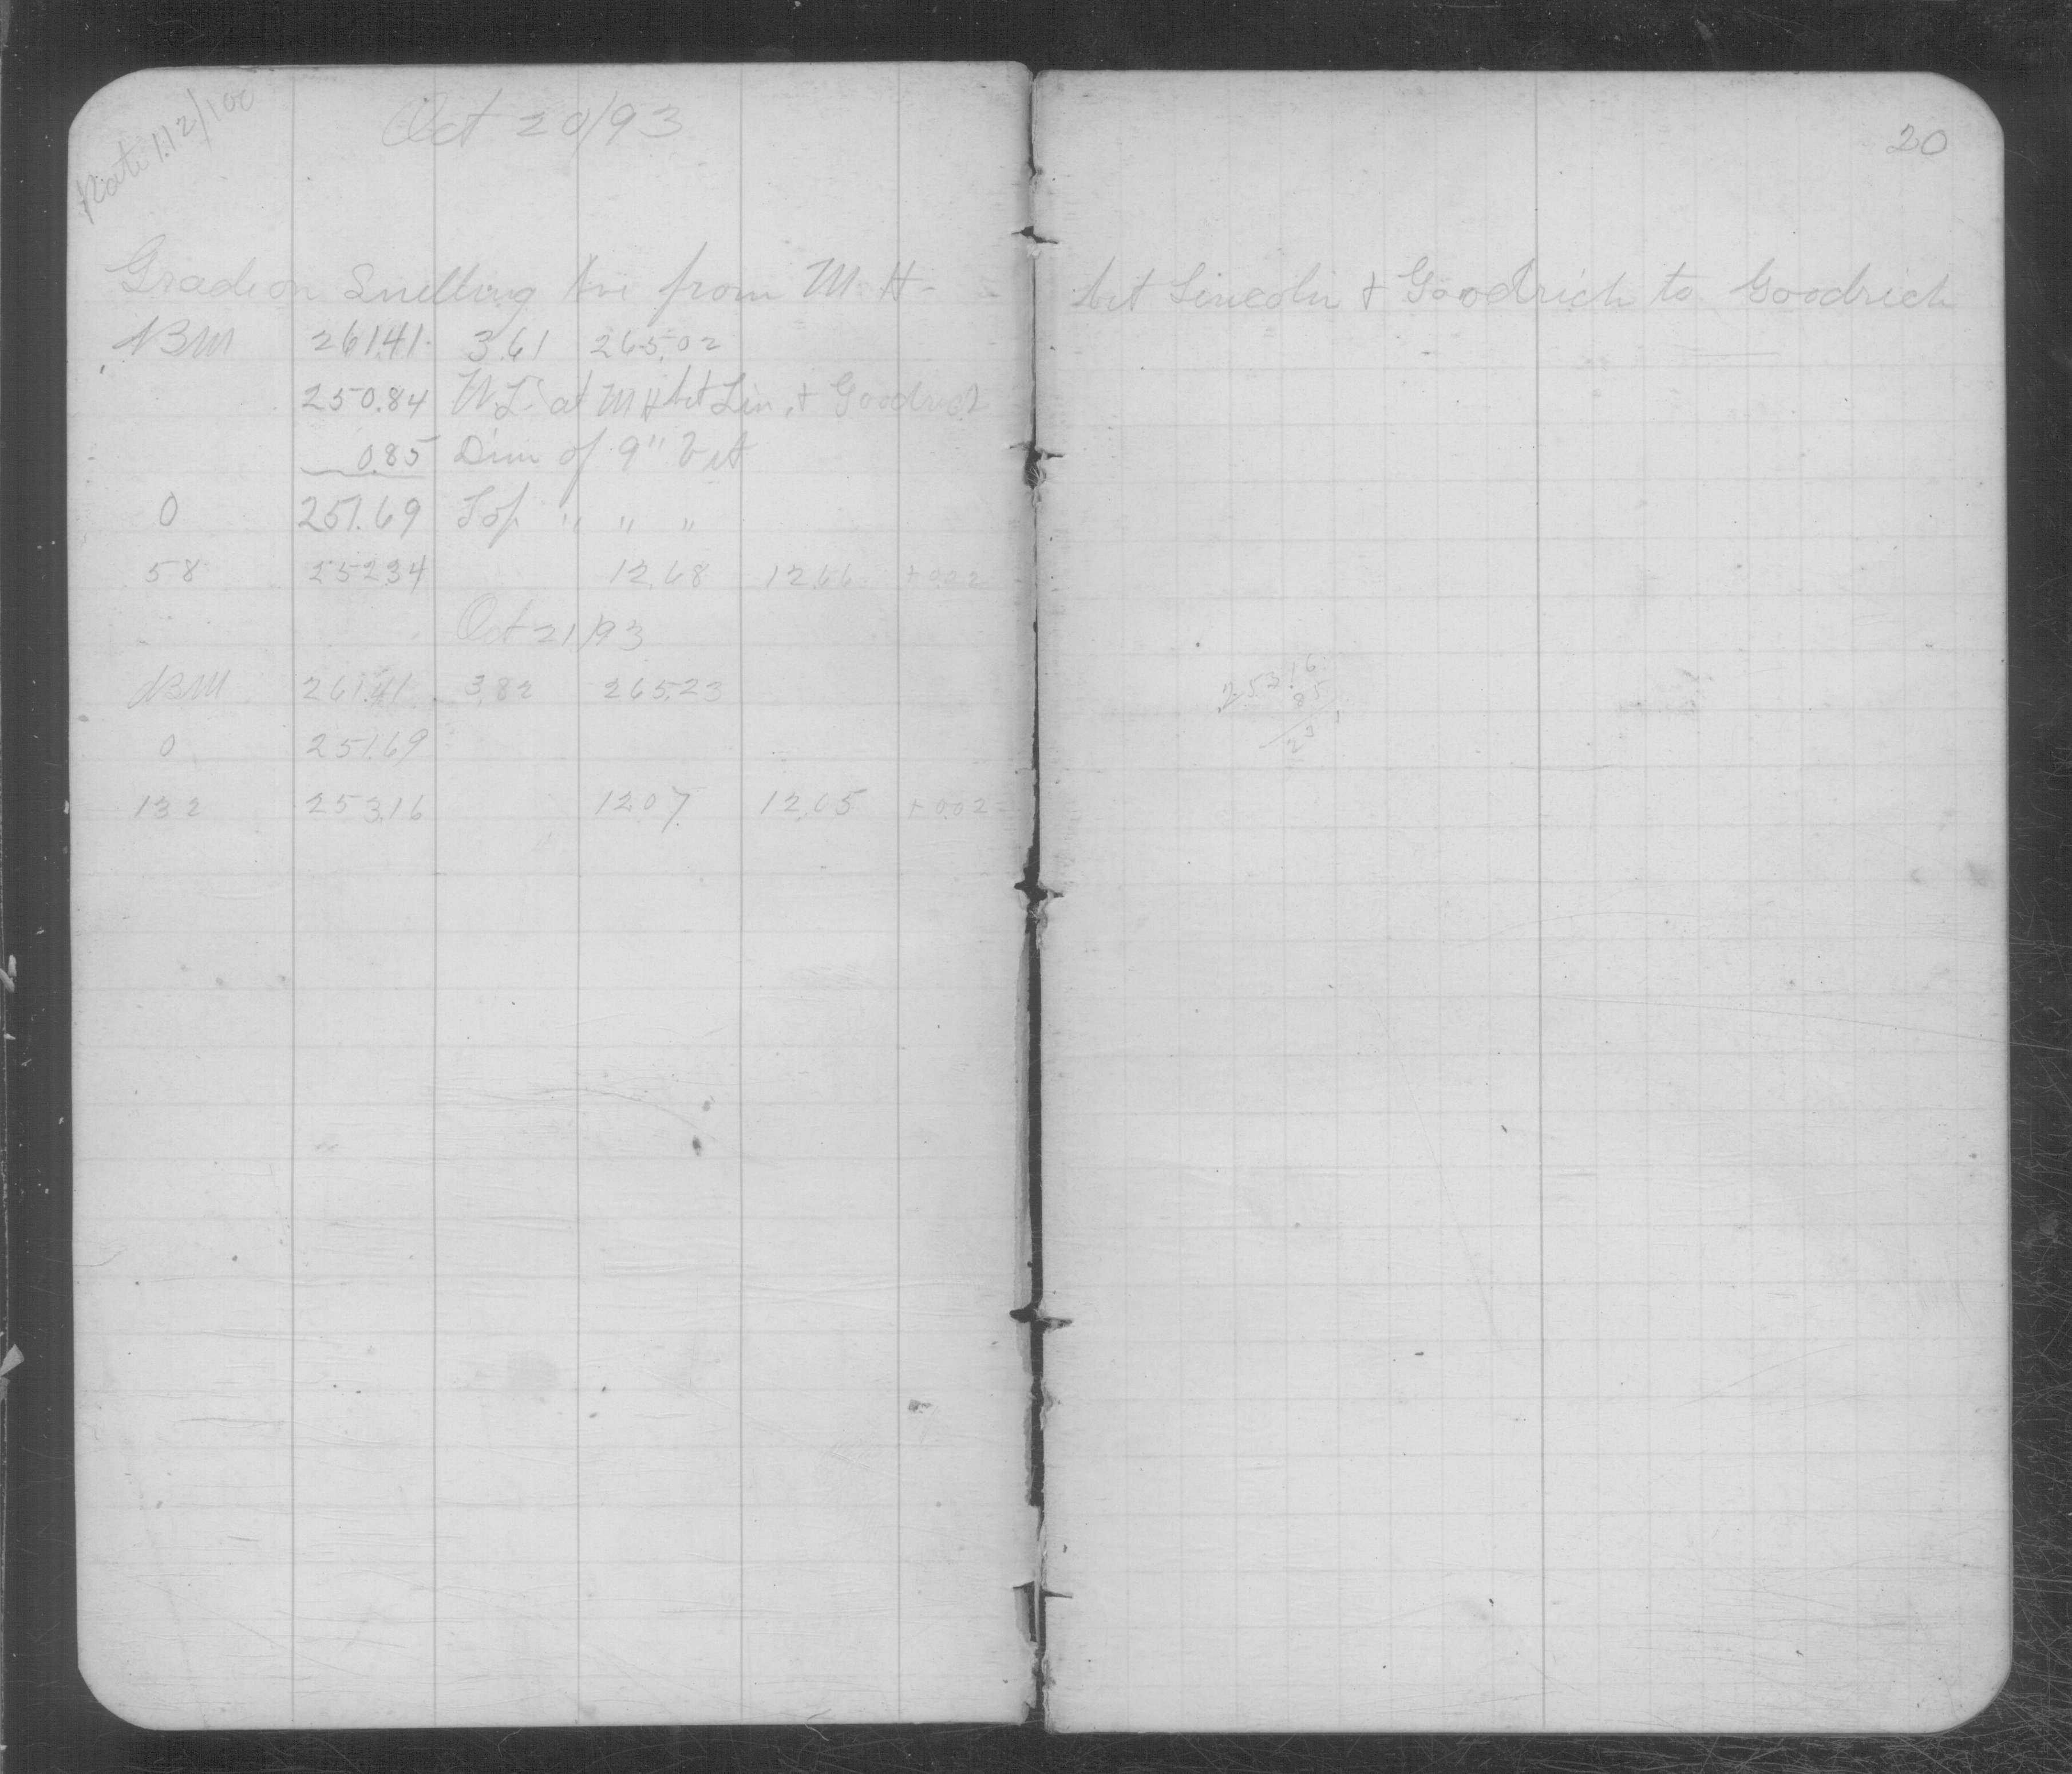 Rate 1.12/100
Oct 20/93
20
Grade on Snelling Ave from M.H. bet Lincoln & Goodrich to Goodrich
BM 261.41 3.61 265.02
250.84 W.L. at MH bet Lin. & Goodrich
0.85 Dim of 9" Vit
0 251.69 Top " " "
58 252.34 12.68 12.66 +0.02
Oct 21/93
BM 261.41 3.82 265.23
0 251.69
132 253.16 12.07 12.05 +0.02
253.16
85